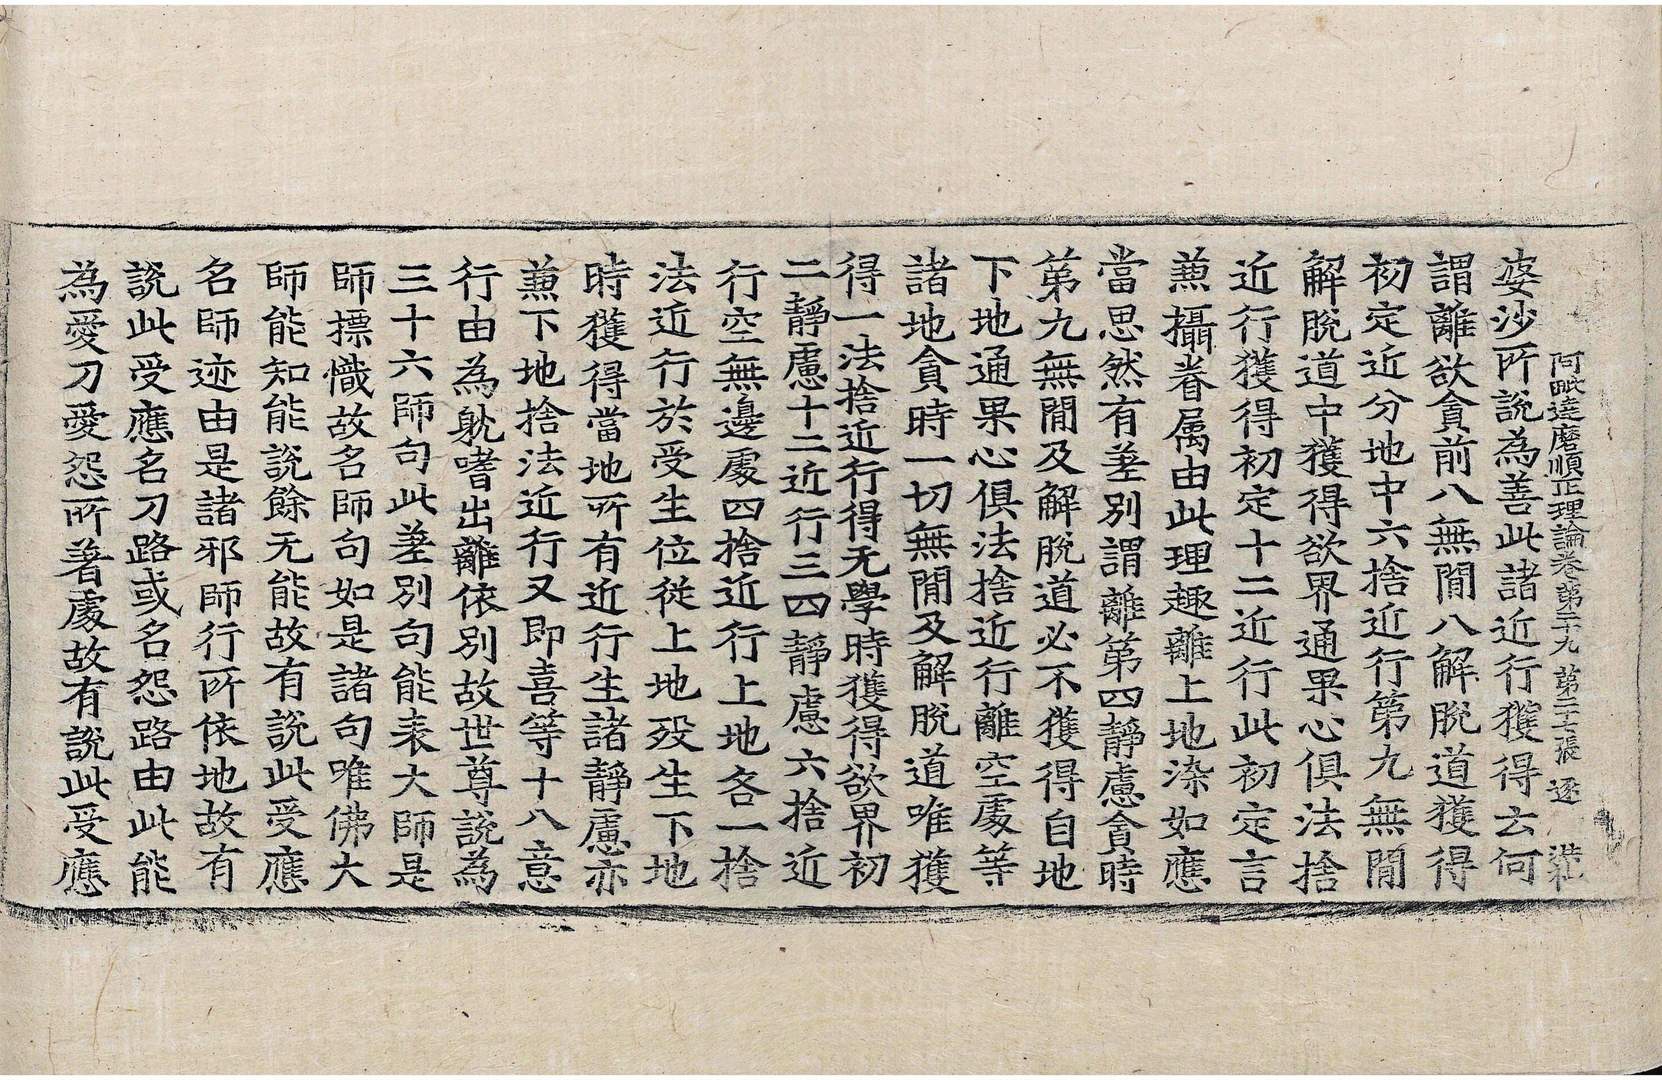 阿毗達磨順正理論卷第二十九 第二十七張 逐
婆沙所說為善此諸近行獲得云何
謂離欲貪前八無間八解脫道獲得
初定近分地中六捨近行第九無間
解脫道中獲得欲界通果心俱法捨
近行獲得初定十二近行此初定言
兼攝眷属由此理趣離上地染如應
當思然有差別謂離第四靜慮貪時
第九無間及解脫道必不獲得自地
下地通果心俱法捨近行離空處等
諸地貪時一切無間及解脫道唯獲
得一法捨近行得无學時獲得欲界初
二靜慮十二近行三四靜慮六捨近
行空無邊處四捨近行上地各一捨
法近行於受生位從上地歿生下地
時獲得當地所有近行生諸靜慮亦
兼下地捨法近行又即喜等十八意
行由為躭嗜出離依別故世尊說為
三十六師句此差別句能表大師是
師摽幟故名師句如是諸句唯佛大
師能知能說餘无能故有說此受應
名師迹由是諸邪師行所依地故有
說此受應名刀路或名怨路由此能
為愛刀愛怨所著處故有說此受應